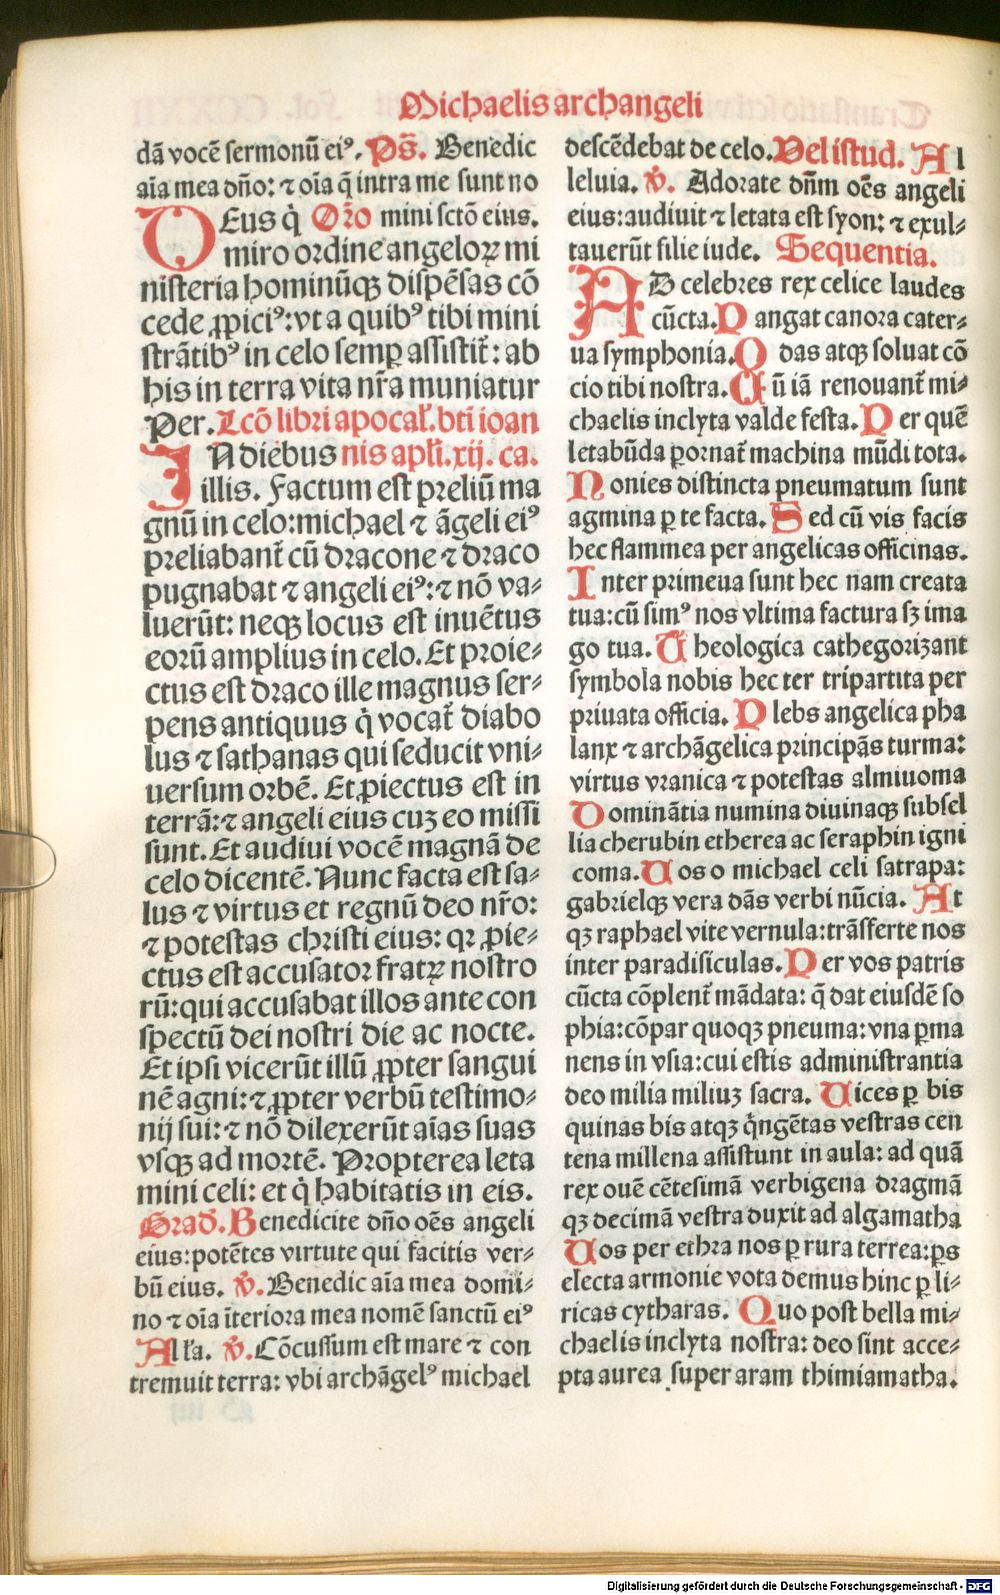 Michaelis archangeli
dā vocē sermonū eiꝰ. Ps̄. Benedic
aīa mea dn̄o: ⁊ oīa q̄ intra me sunt no
DEus q̇ Or̄o mini sctō eius.
miro ordine angeloꝝ mi
nisteria hominūqꝫ dispēsas cō
cede ꝓpiciꝰ: vt a quibꝰ tibi mini
strātibꝰ in celo semꝑ assistit̄: ab
his in terra vita nr̄a muniatur
Per. Lcō libri apocal̄. bt̄i ioan
IN diebus nis apl̄i. xij. ca.
illis. Factum est preliū ma
gnū in celo: michael ⁊ āgeli eiꝰ
preliabant̄ cū dracone ⁊ draco
pugnabat ⁊ angeli eiꝰ: ⁊ nō va⸗
luerūt: neqꝫ locus est inuētus
eorū amplius in celo. Et proie⸗
ctus est draco ille magnus ser⸗
pens antiquus q̇ vocat̄ diabo
lus ⁊ sathanas qui seducit vni⸗
uersum orbē. Et ꝓiectus est in
terrā: ⁊ angeli eius cuꝫ eo missi
sunt. Et audiui vocē magnā de
celo dicentē. Nunc facta est sa⸗
lus ⁊ virtus et regnū deo nr̄o:
⁊ potestas christi eius: qꝛ ꝓie⸗
ctus est accusator fratꝝ nostro
rū: qui accusabat illos ante con
spectū dei nostri die ac nocte.
Et ipsi vicerūt illū ꝓpter sangui
nē agni: ⁊ ꝓpter verbū testimo⸗
nij sui: ⁊ nō dilexerūt aīas suas
vsqꝫ ad mortē. Propterea leta
mini celi: et q̇ habitatis in eis.
Grad̄. Benedicite dn̄o oēs angeli
eius: potētes virtute qui facitis ver⸗
bū eius. ℣. Benedic aīa mea domi⸗
no ⁊ oīa īteriora mea nomē sanctū eiꝰ
Alla. ℣. Cōcussum est mare ⁊ con
tremuit terra: vbi archāgelꝰ michael
descēdebat de celo. Vel istud. Al
leluia. ℣. Adorate dn̄m oēs angeli
eius: audiuit ⁊ letata est syon: ⁊ exul⸗
tauerūt filie iude. Sequentia.
AD celebres rex celice laudes
cūcta. Pangat canora cater⸗
ua symphonia. Odas atqꝫ soluat cō
cio tibi nostra. Cū iā renouant̄ mi⸗
chaelis inclyta valde festa. Per quē
letabūda ꝑornat̄ machina mūdi tota.
Nonies distincta pneumatum sunt
agmina ꝑ te facta. Sed cū vis facis
hec flammea per angelicas officinas.
Inter primeua sunt hec nam creata
tua: cū simꝰ nos vltima factura sꝫ ima
go tua. Theologica cathegorizant
symbola nobis hec ter tripartita per
priuata officia. Plebs angelica pha
lanx ⁊ archāgelica principās turma:
virtus vranica ⁊ potestas almiuoma
Dominātia numina diuinaqꝫ subsel
lia cherubin etherea ac seraphin igni
coma. Uos o michael celi satrapa:
gabrielqꝫ vera dās verbi nūcia. At
qꝫ raphael vite vernula: trāsferte nos
inter paradisiculas. Per vos patris
cūcta cōplent̄ mādata: q̄ dat eiusdē so
phia: cōpar quoqꝫ pneuma: vna ꝑma
nens in vsia: cui estis administrantia
deo milia miliuꝫ sacra. Uices ꝑ bis
quinas bis atqꝫ q̇ngētas vestras cen
tena millena assistunt in aula: ad quā
rex ouē cētesimā verbigena dragmā
qꝫ decimā vestra duxit ad algamatha
Uos per ethra nos ꝑ rura terrea: ꝑs
electa armonie vota demus hinc ꝑ li⸗
ricas cytharas. Quo post bella mi⸗
chaelis inclyta nostra: deo sint acce⸗
pta aurea super aram thimiamatha.
Digitalisierung gefördert durch die Deutsche Forschungsgemeinschaft - DFG